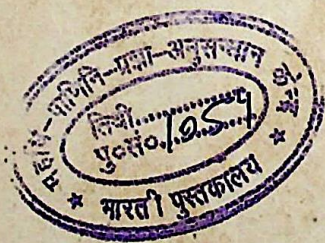 महर्षि-पाणिनि-प्रज्ञा-अनुसन्धान केन्द्र
तिथी..............
पु०सं०.1251......
★ भारती पुस्तकालय ★